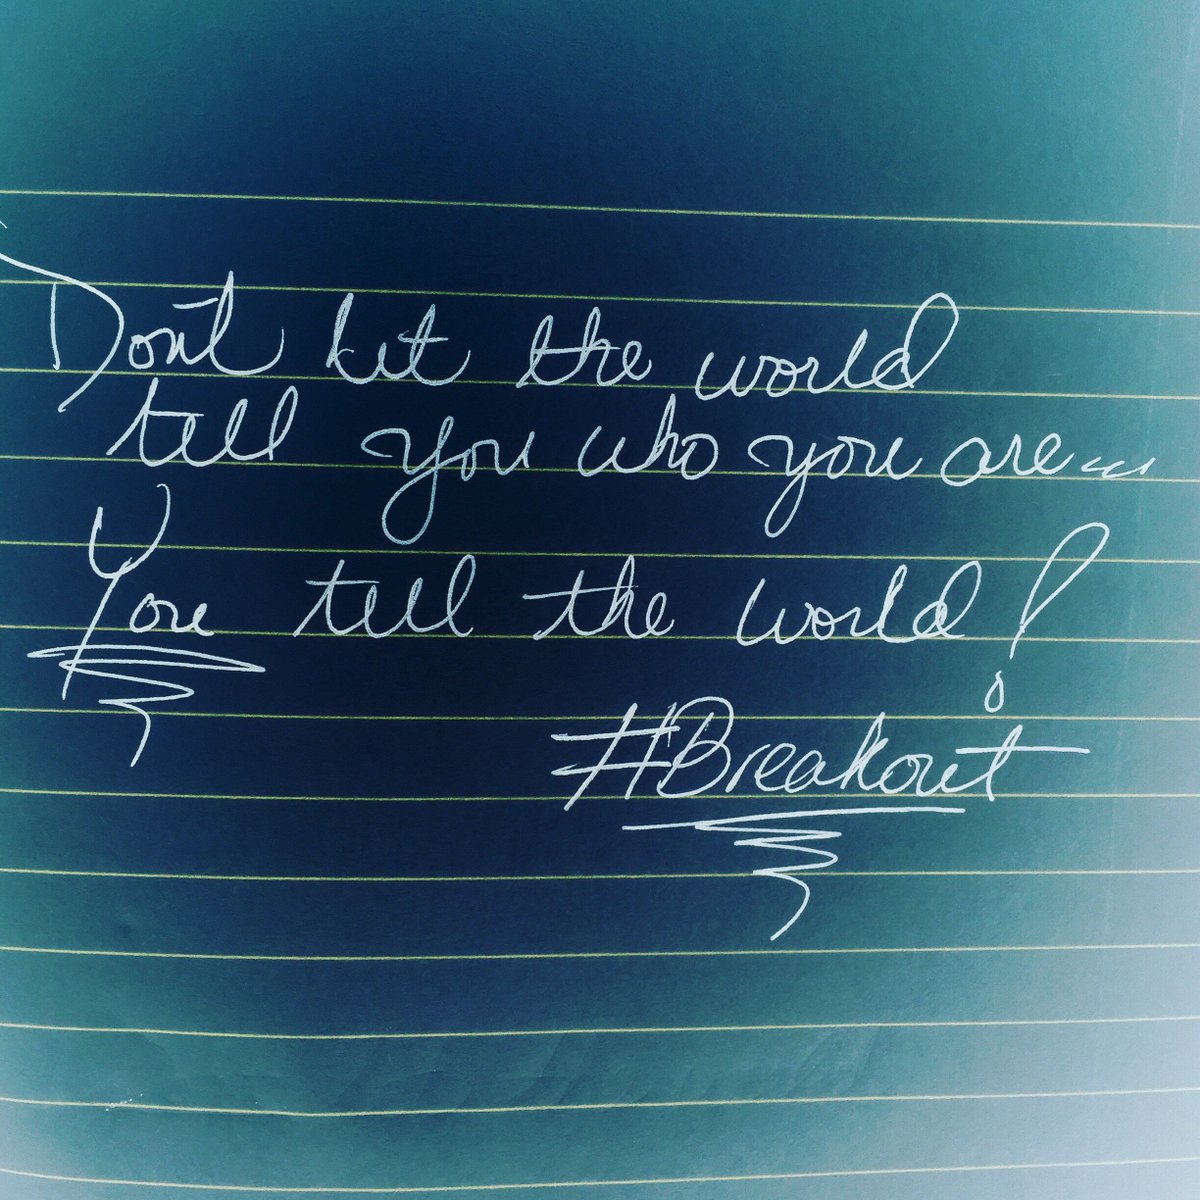 Don't let the world
tell you who you are...
You tell the world!
#Breakout